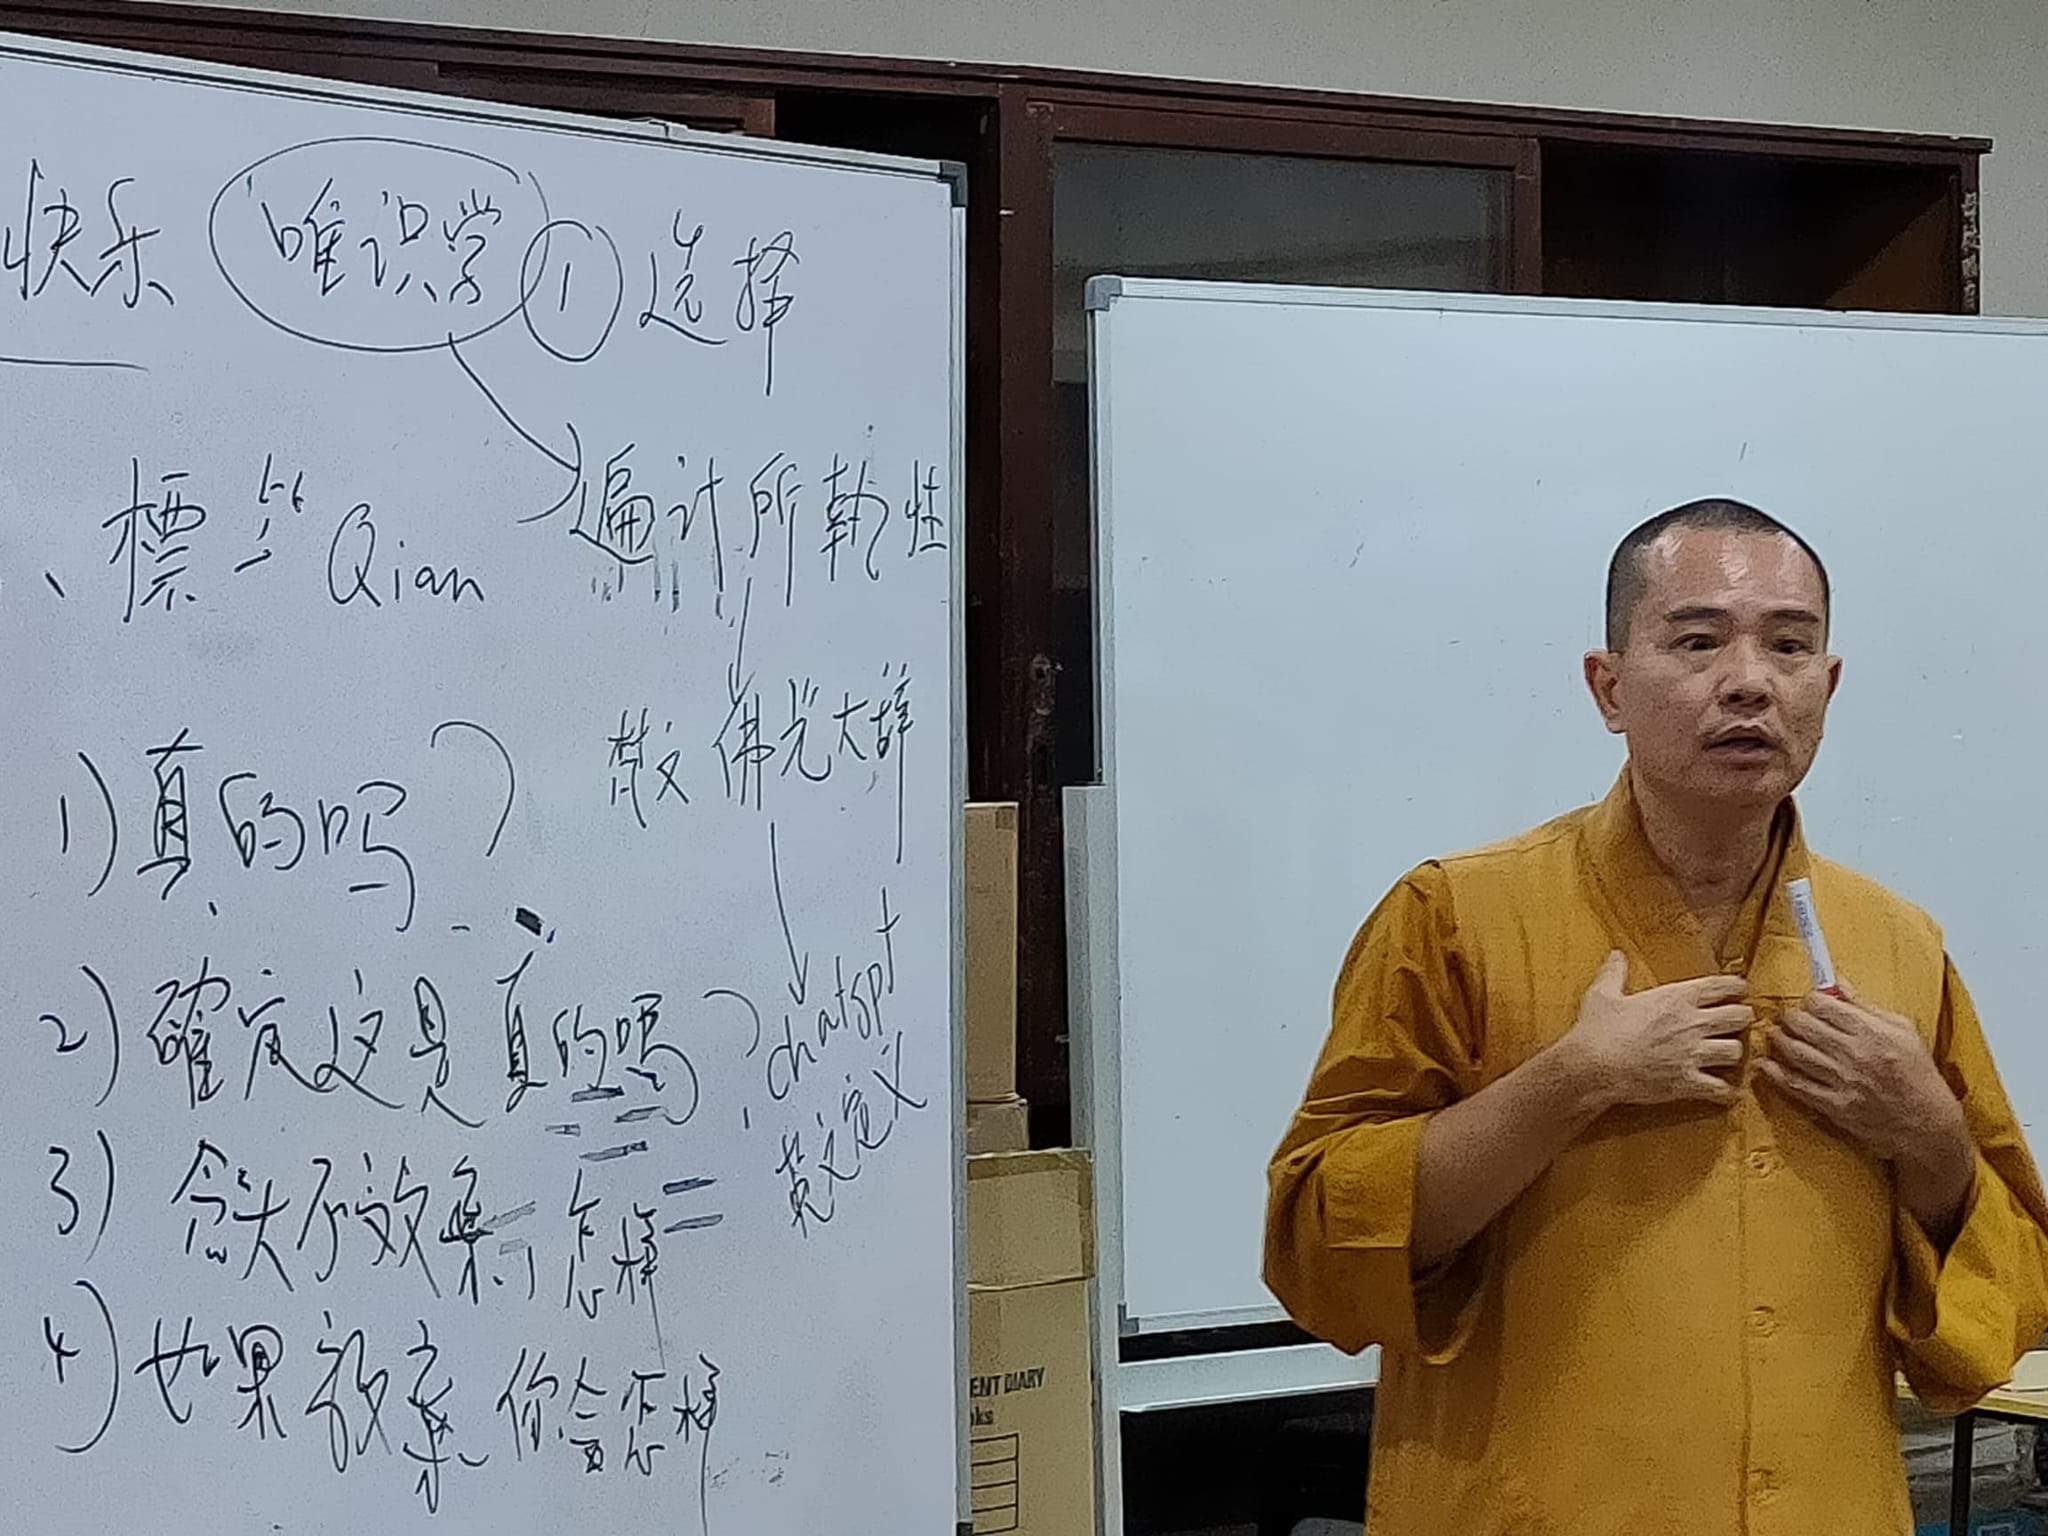 快乐 唯识学 ① 选择
、標 Qian 遍计所執性
散文 佛光大辞
1) 真的吗?
chatgpt
英文定义
2) 確定这是真的吗?
3) 念头不放棄 怎样
4) 如果放棄 你会怎样
ENT DIARY